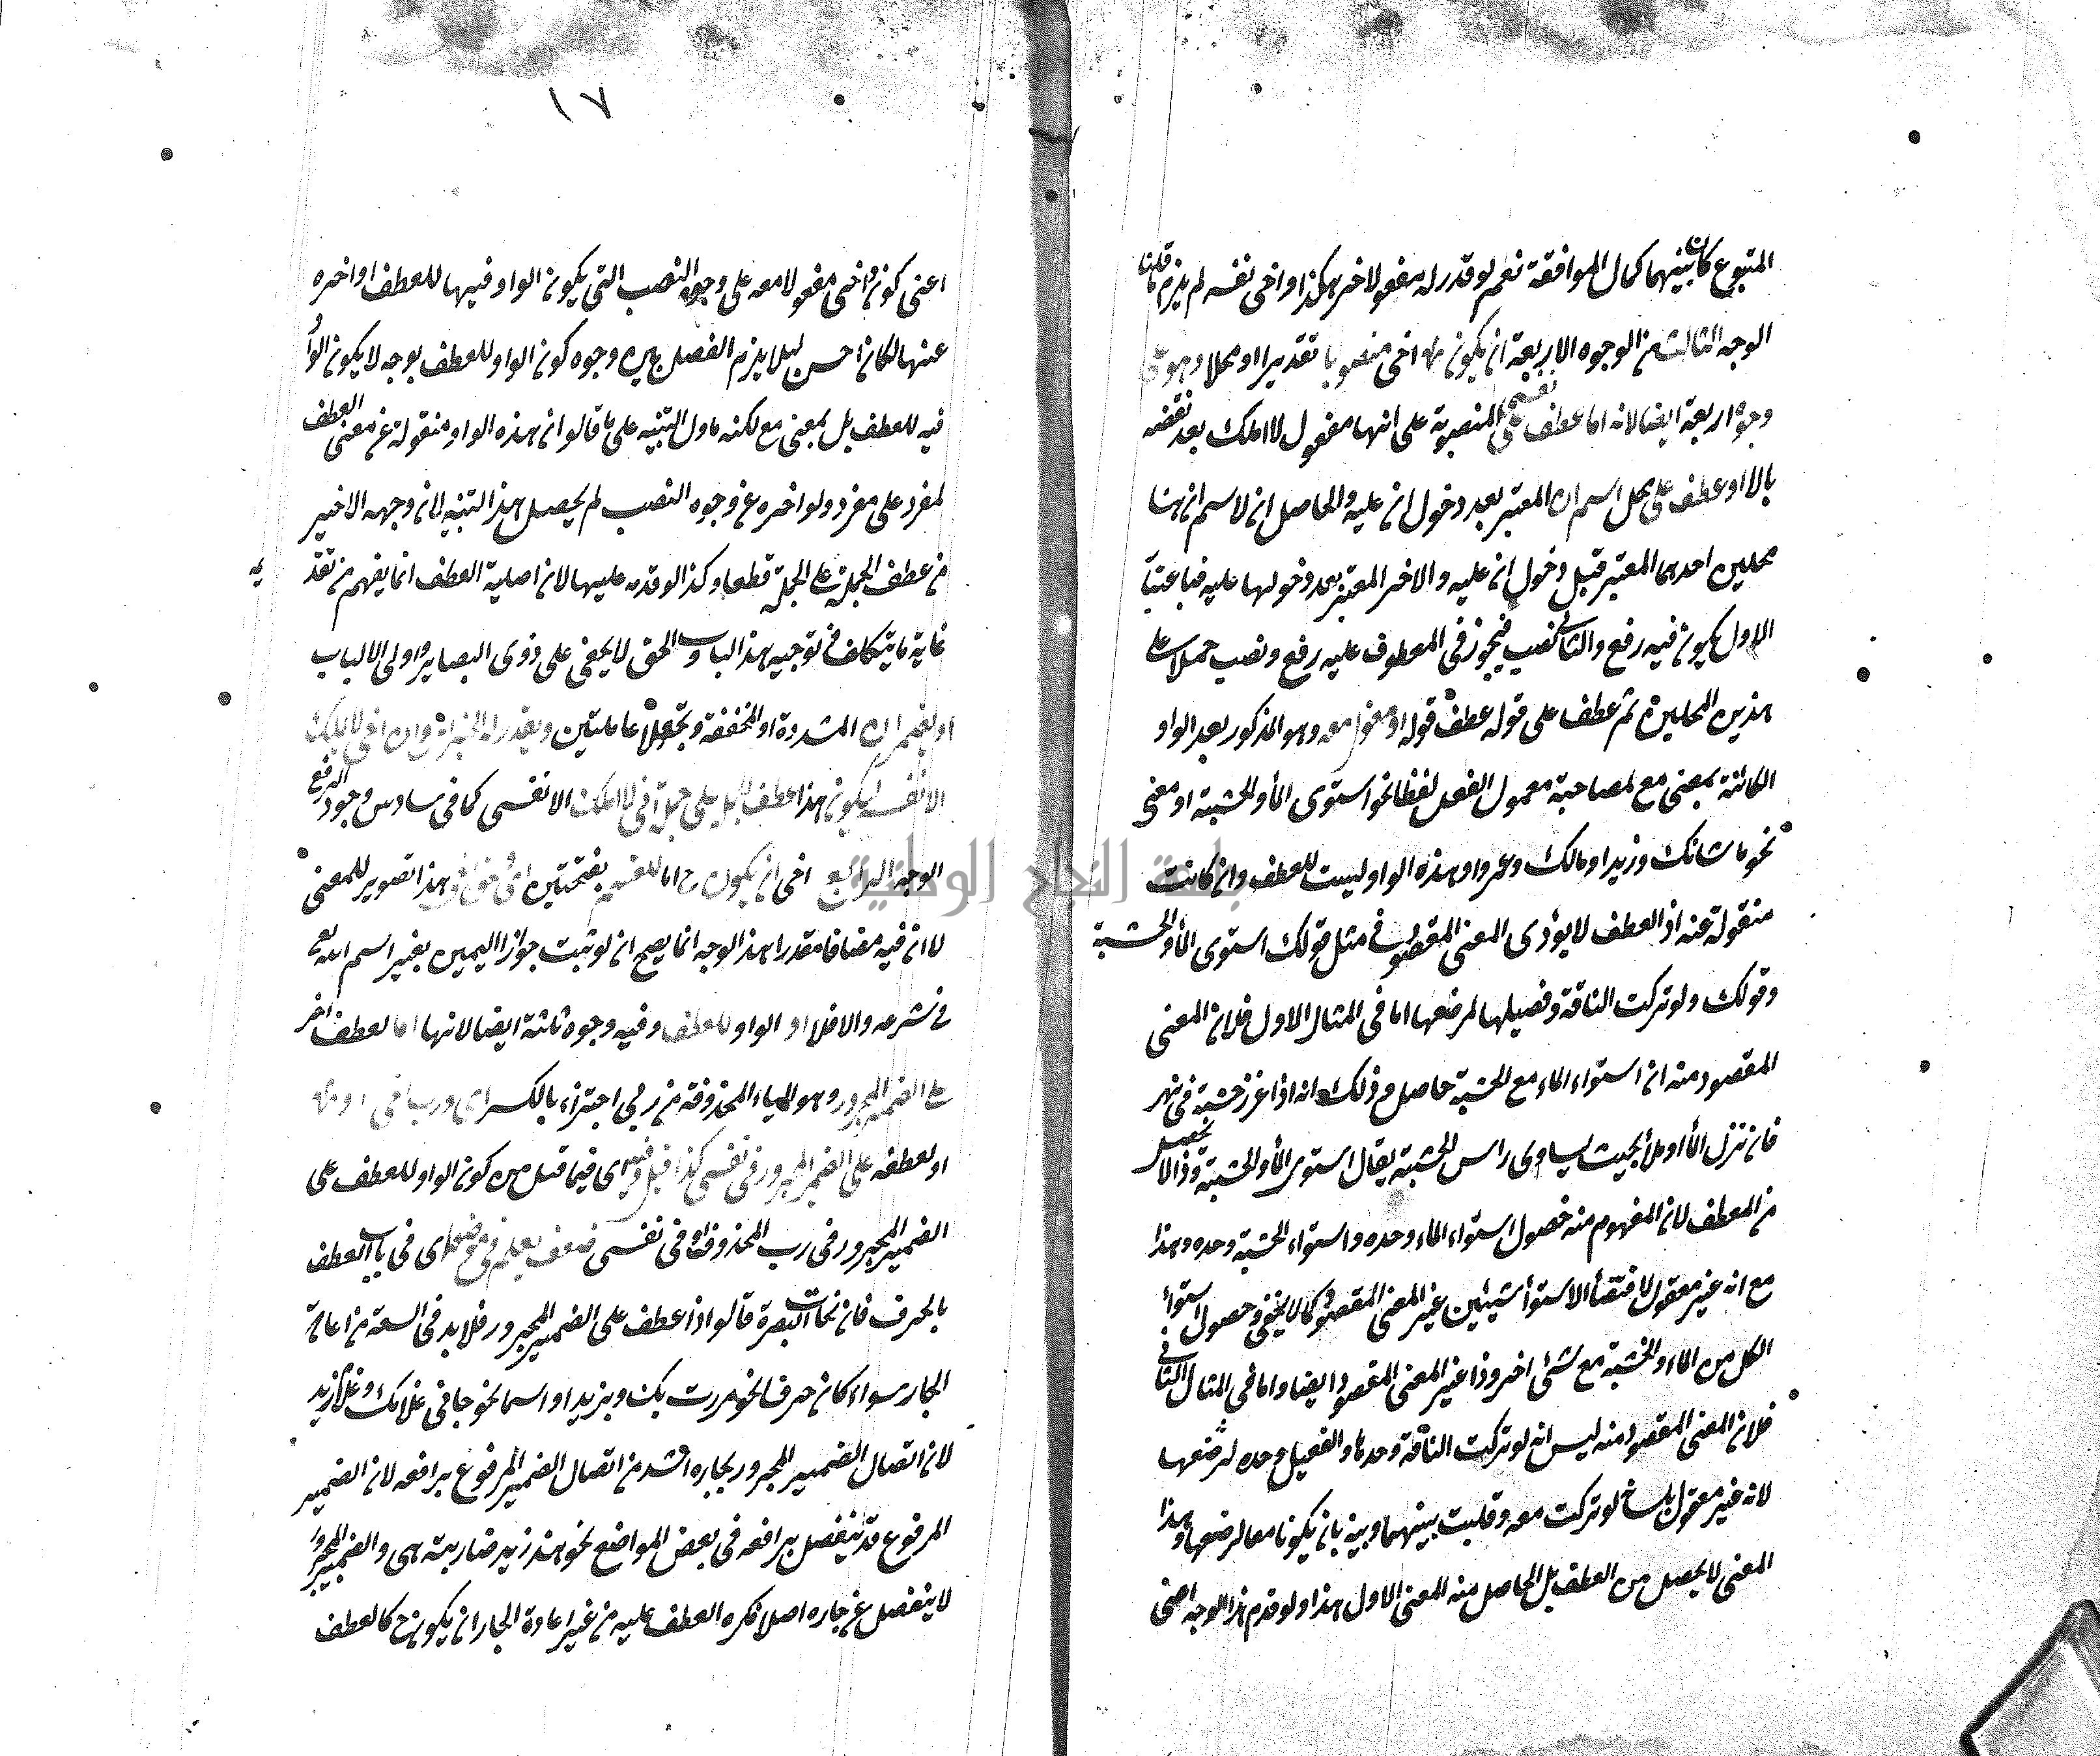 المتبوع كان بينهما كمال الموافقة نعم لو قدر له مفعولا اخر هكذا واخى نفسه لم يلزم ما قلنا
الوجه الثالث من الوجوه الاربعة ان يكون اخى منصوبا تقديرا او محلا وهو على
وجوه اربعة ايضا لانه اما عطف على نفسى المنصوبة على انها مفعول لا املك بعد نقضه
بالا او عطف على محل اسم ان المعتبر بعد دخول ان عليه والحاصل ان لاسم ان هنا
محلين احدهما المعتبر قبل دخول ان عليه والاخر المعتبر بعد دخولها عليه فباعتبار
الاول يكون فيه رفع والثانى نصب فيجوز فى المعطوف عليه رفع ونصب حملا على
هذين المحلين ثم عطف على قوله عطف قوله او مفعول معه وهو المذكور بعد الواو
الكائنة بمعنى مع لمصاحبة معمول الفعل لفظا نحو استوى الماء والخشبة او معنى
نحو ما شانك وزيدا ومالك وعمروا وهذه الواو ليست للعطف وان كانت
منقولة عنه اذ العطف لا يؤدى المعنى المقصود فى مثل قولك استوى الماء والخشبة
وقولك ولو تركت الناقة وفصيلها لرضعها اما فى المثال الاول فلان المعنى
المقصود منه ان استواء الماء مع الخشبة حاصل وذلك انه اذا غرز خشبة فى نهر
فان نزل الماء او ملأ بحيث يساوى راس الخشبة يقال استوى الماء والخشبة وذا لا يحصل
من العطف لان المفهوم منه حصول استواء الماء وحده واستواء الخشبة وحده وهذا
مع انه غير معقول لاقتضاء الاستواء شيئين غير المعنى المقصود كما لا يخفى وحصول استواء
الكل من الماء والخشبة مع شئ اخر وذا غير المعنى المقصود ايضا واما فى المثال الثانى
فلان المعنى المقصود منه ليس انه لو تركت الناقة وحدها والفصيل وحده لرضعها
لانه غير معقول بل لو تركت معه وقلبت بينهما وبينه بان يكونا معا لرضعها وهذا
المعنى لا يحصل من العطف بل الحاصل منه المعنى الاول هذا ولو قدم هذا الوجه اعنى
١٧
اعنى كون اخى مفعولا معه على وجوه النصب التى يكون الواو فيها للعطف او اخره
عنها لكان احسن ليلا يلزم الفصل بين وجوه كون الواو للعطف بوجه لا يكون الواو
فيه للعطف بل بمعنى مع لكنه حاول التنبيه على ما قالوا ان هذه الواو منقولة عن معنى العطف
لمفرد على مفرد ولو اخره عن وجوه النصب لم يحصل هذا التنبيه لان وجهه الاخير
من عطف الجملة على الجملة قطعا وكذا لو قدمه عليها لان اصلية العطف انما يفهم من تقد
يمه
غاية ما يتكلف فى توجيه هذا الباب والحق لا يخفى على ذوى البصاير واولى الالباب
او بضمير ان المشددة او المخففة وتجعلا عاملتين ويقدر له الخبر اى وان اخى لا يملك
الا نفسه ليكون هذا عطف جملة على جملة انى لا املك الا نفسى كما فى سادس وجوه الرفع
الوجه الرابع اخى ان يكون ح اما للقسم بفتحتين هذا تصوير للمعنى
لا ان فيه مضافا مقدرا هذا الوجه انما يصح ان لو ثبت جواز اليمين بغير اسم الله تعالى
فى شرعه والا فلا او الواو للعطف وفيه وجوه ثلثة ايضا لانها اما لعطف اخى
على الضمير المجرور وهو الياء المحذوفة من ربى اجتزاء بالكسر اى ورب اخى
او لعطفه على الضمير المجرور فى نفسى كذا قيل وفيه اى فيما قيل من كون الواو للعطف على
الضمير المجرور فى رب المحذوفة او فى نفسى ضعف يعلم فى موضعه اى فى باب العطف
بالحرف فان نحات البصرة قالوا اذا عطف على الضمير المجرور فلا بد فى السعة من اعادة
الجار سواء كان حرفا نحو مررت بك وبزيد او اسما نحو جاءنى غلامك وغلام زيد
لان اتصال الضمير المجرور بجاره اشد من اتصال الضمير المرفوع برافعه لان الضمير
المرفوع قد ينفصل برافعه فى بعض المواضع نحو هند زيد ضاربته هى والضمير المجرور
لا ينفصل عن جاره اصلا فكره العطف عليه من غير اعادة الجار ان يكون ح كالعطف